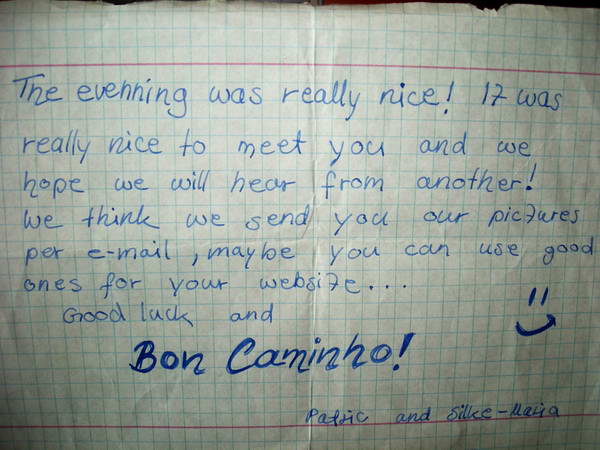 The evenning was really nice! It was
really nice to meet you and we
hope we will hear from another!
We think we send you our pictures
per e-mail, maybe you can use good
ones for your website...
Good luck and
Bon Caminho!
Patric and Silke-Maria